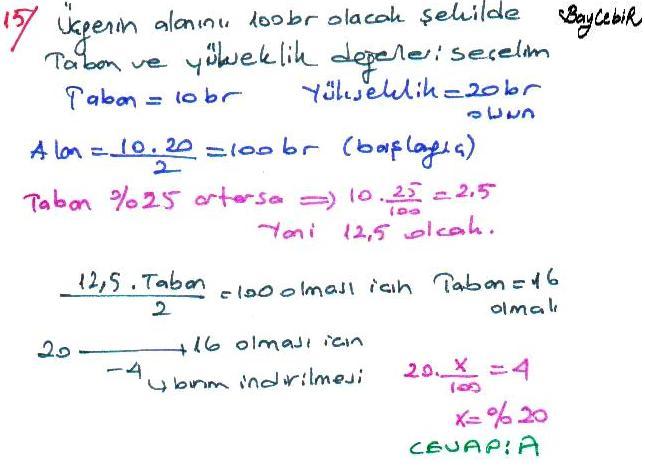 15) Üçgenin alanını 100br olacak şekilde
BayCebiR
Taban ve yükseklik değerleri seçelim
Taban = 10br Yükseklik = 20br
olsun
Alan = 10.20 / 2 = 100br (başlangıç)
Taban %25 artarsa => 10.25/100 = 2,5
Yani 12,5 olcak.
12,5 . Taban / 2 = 100 olması için Taban = 16
olmalı
20 → 16 olması için
-4 ↳ birim indirilmesi
20. x/100 = 4
x = %20
CEVAP: A